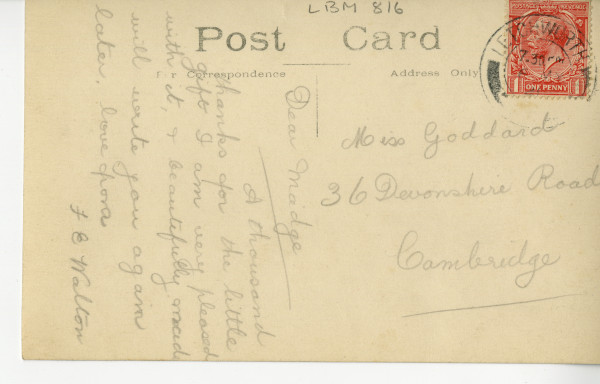 LBM 816
Post Card
For Correspondence
Address Only
LETCHWORTH
POSTAGE REVENUE
ONE PENNY
Dear Madge
A thousand
thanks for the little
gift I am very pleased
with it, & beautifully made
will write you again
later, love from
F C Walton
Miss Goddard
36 Devonshire Road
Cambridge